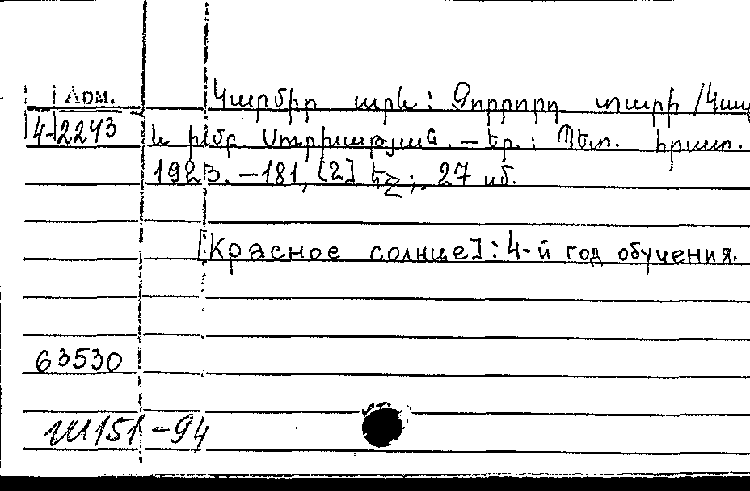 Арм.
4-2243
Կարմիր արև : Չորրորդ տարի / Կազ
և խմբ. Ստրիապյան. – Եր. : Պետ. հրատ.
1923. – 181, [2] էջ ; 27 սմ.
[Красное солнце] : 4-й год обучения.
63530
Ш151-94